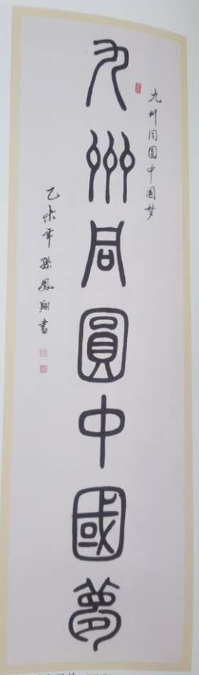 九州同圓中國夢
九州同圆中国梦
乙未年孫鳳翔書